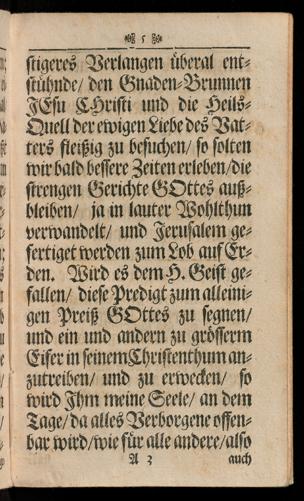 5
stigeres Verlangen überal ent-
stühnde/ den Gnaden-Brunnen
JEsu CHristi und die Heils-
Quell der ewigen Liebe des Vat-
ters fleißig zu besuchen/ so solten
wir bald bessere Zeiten erleben/die
strengen Gerichte GOttes auß-
bleiben/ ja in lauter Wohlthun
verwandelt/ und Jerusalem ge-
fertiget werden zum Lob auf Er-
den. Wird es dem H. Geist ge-
fallen/ diese Predigt zum alleini-
gen Preiß GOttes zu segnen/
und ein und andern zu grösserm
Eifer in seinem Christenthum an-
zutreiben/ und zu erwecken/ so
wird Jhm meine Seele/ an dem
Tage/ da alles Verborgene offen-
bar wird/ wie für alle andere/ also
A 3 auch